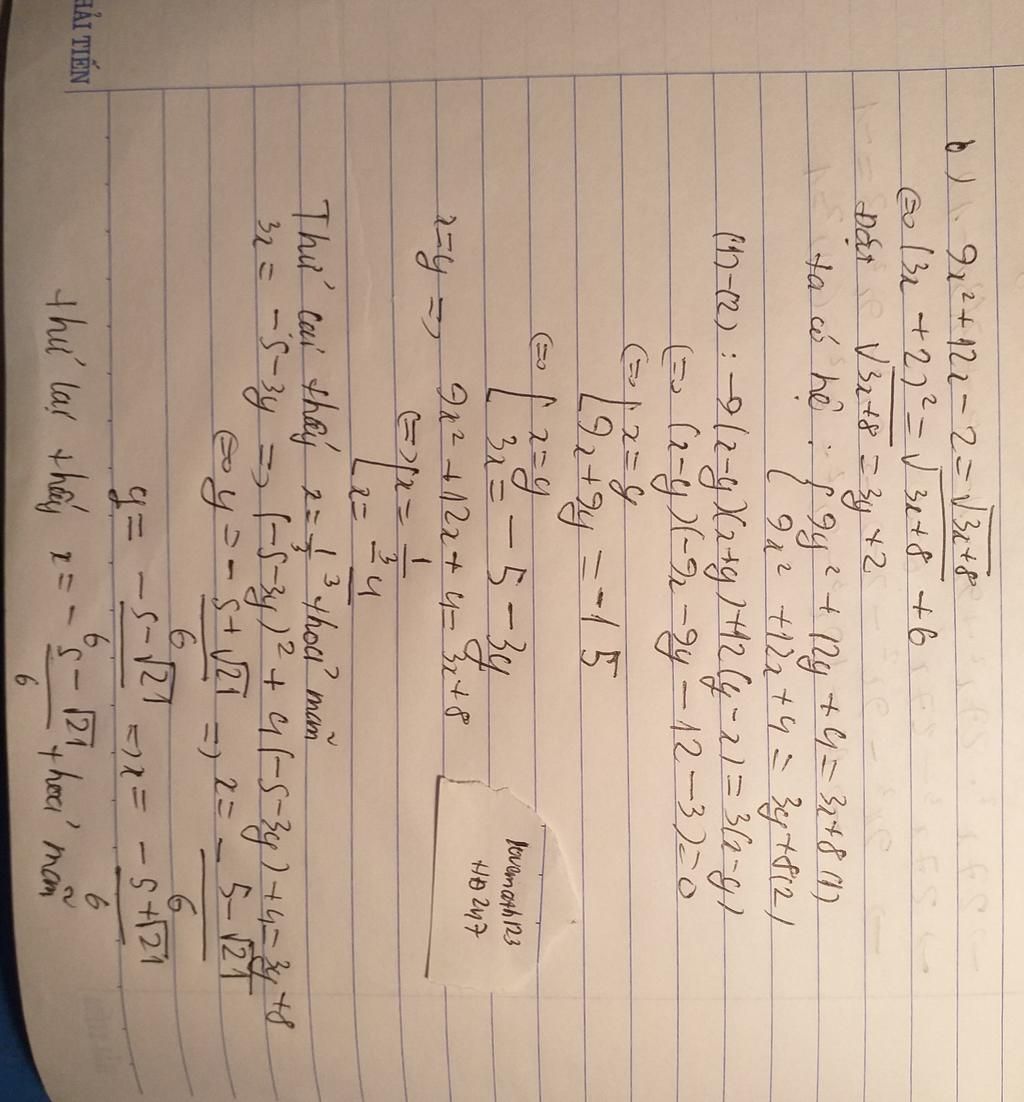 HẢI TIẾN
b) 9x² + 12x - 2 = √3x+8
(=> (3x + 2)² = √3x+8 + 6
Đặt √3x+8 = 3y + 2
ta có hệ : { 9y² + 12y + 4 = 3x+8 (1)
{ 9x² + 12x + 4 = 3y+8 (2)
(1)-(2) : -9(x-y)(x+y)+12(y-x) = 3(x-y)
(=> (x-y)(-9x-9y-12-3)=0
(=> [ x=y
[ 9x+9y = -15
(=> [ x=y
[ 3x = -5-3y
x=y => 9x² + 12x + 4 = 3x+8
(=> [ x = 1/3
[ x = -4/3
Thử lại thấy x = 1/3 thoả mãn
3x = -5-3y => (-5-3y)² + 4(-5-3y)+4 = 3y+8
(=> y = -5+√21/6 => x = -5-√21/6
y = -5-√21/6 => x = -5+√21/6
thử lại thấy x = -5-√21/6 thoả mãn
lovemath123
HĐ247